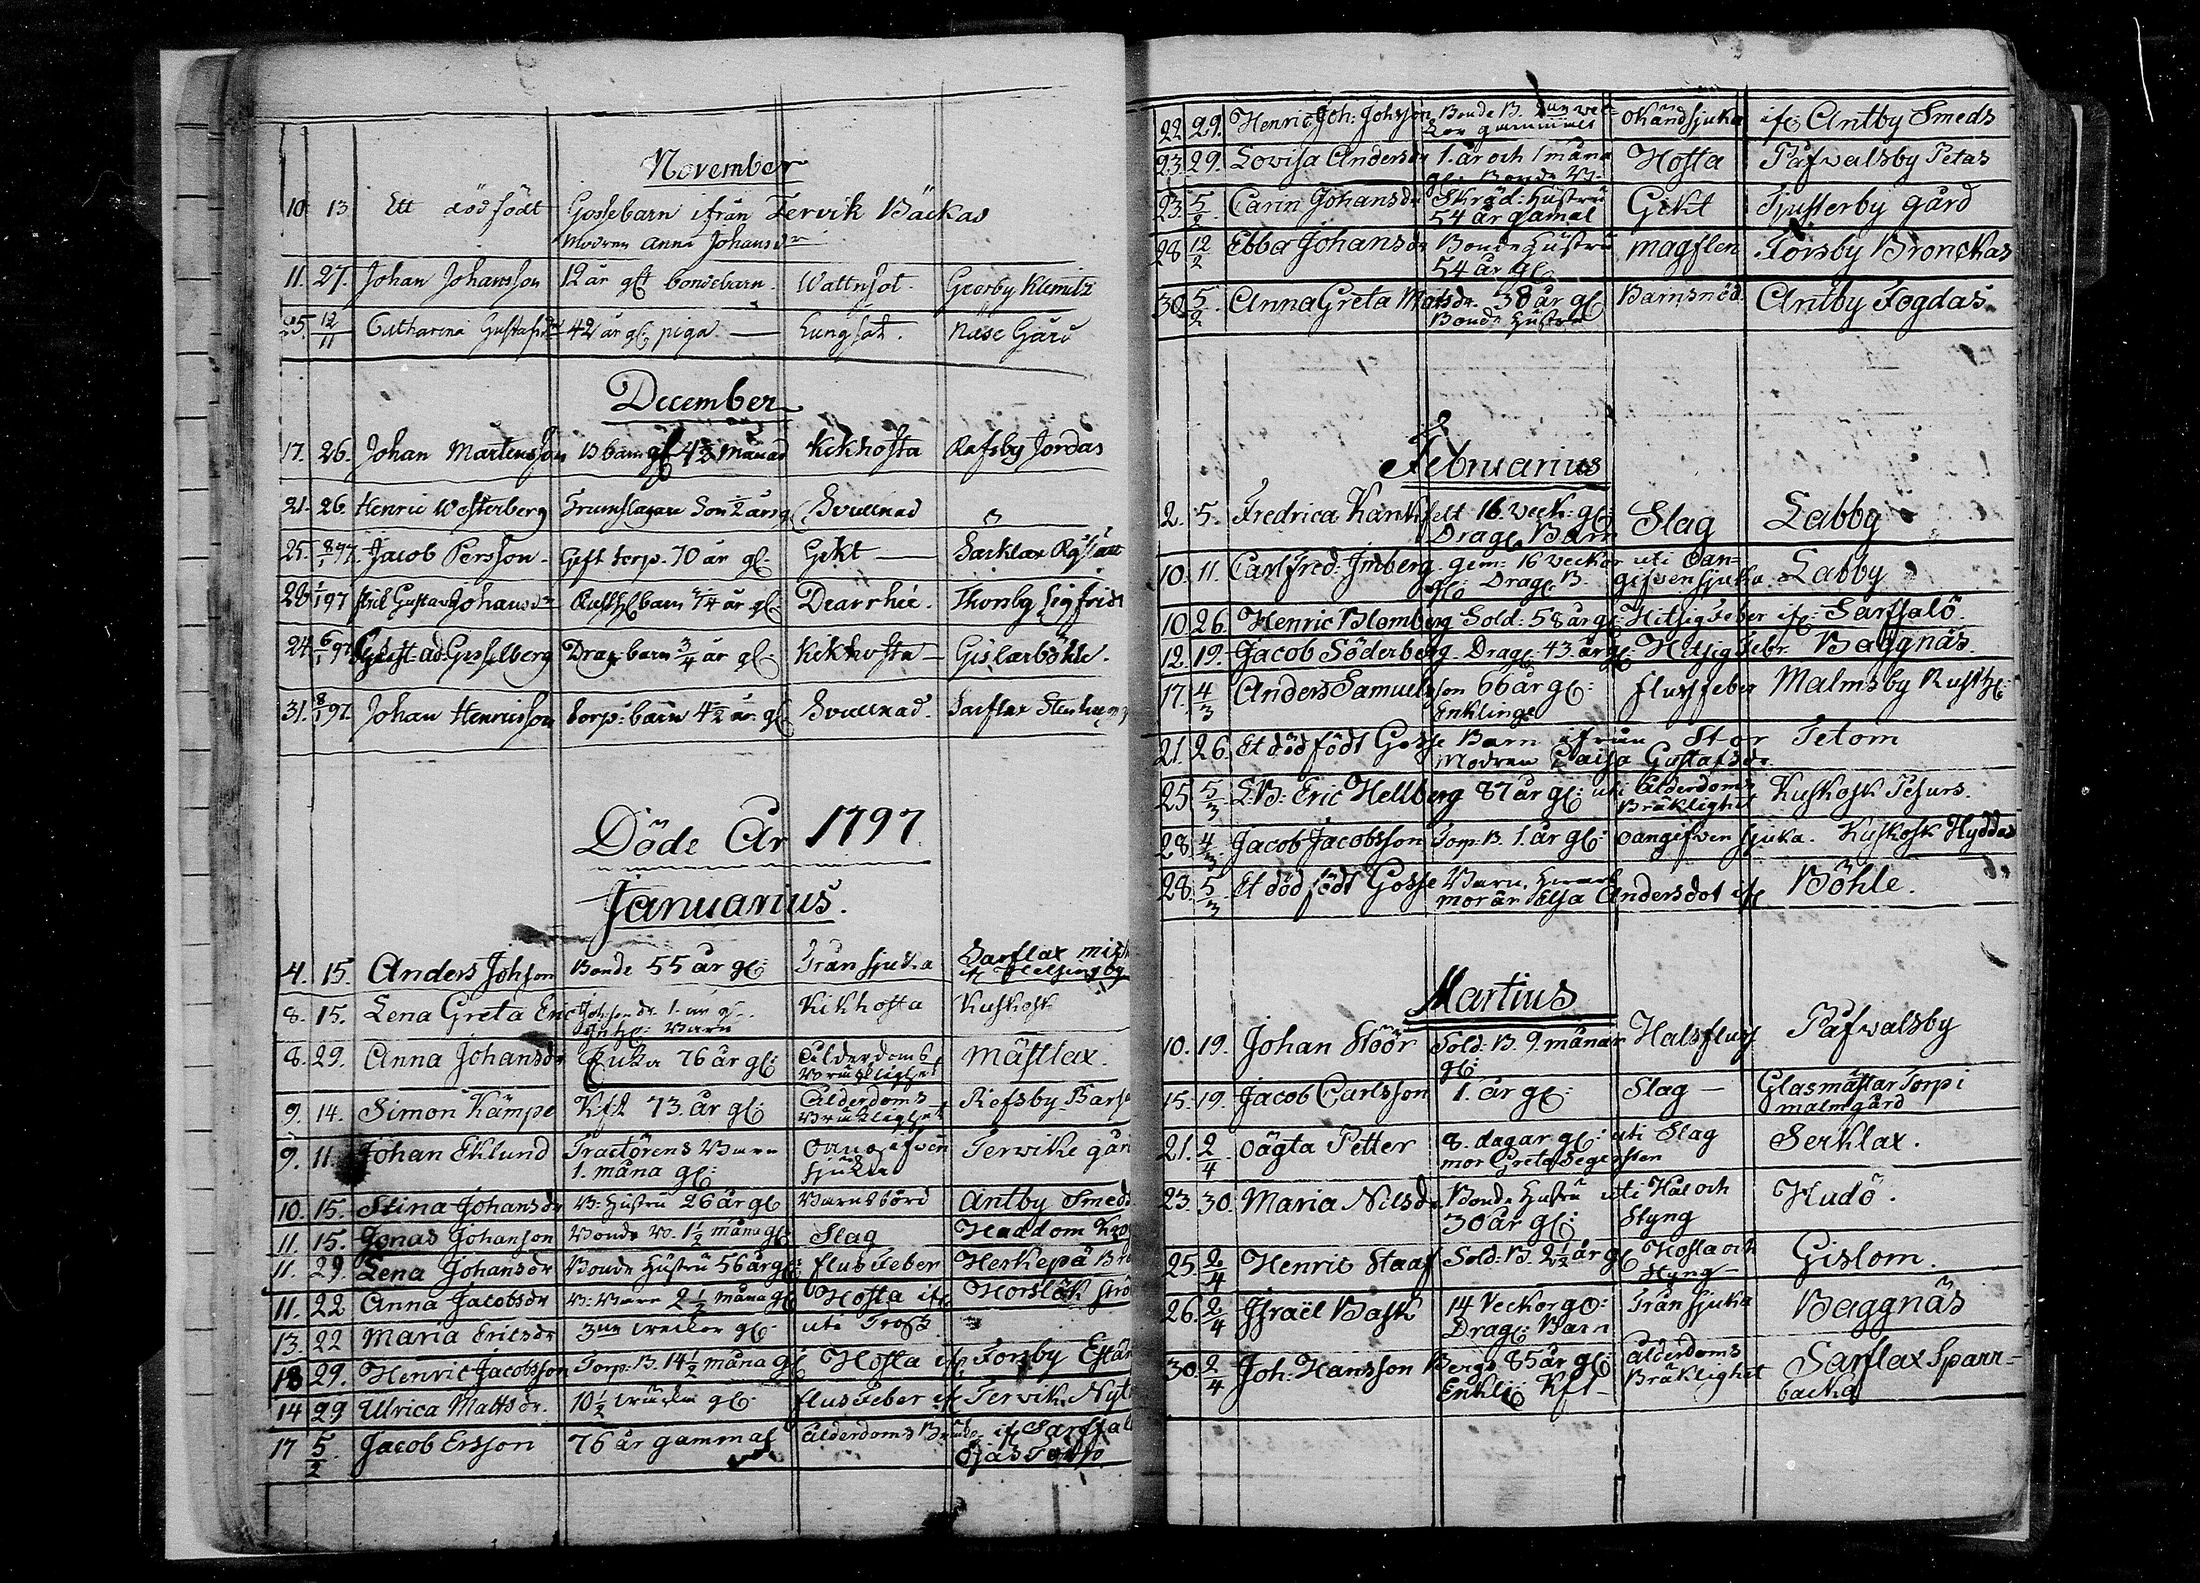 November
10. 13. Ett dödfödt Gossebarn ifrån Tervik Bäckas
Modren Anna Johansdr
11. 27. Johan Johansson 12 år glt bondebarn. Wattnsot. Greorby Klemitz
25. 12/11 Catharina Gustafsdr 42 år gl. piga. Lungsot. Näse Gård
December
17. 26. Johan Martensson B barn gl 4 1/2 månad Kekhosta Refsby Jordas
21. 26. Henric Westerberg Trumslagare Son 1/2 års gl. Svullnad
25. 8/1 97. Jacob Persson. Gift torp. 70 år gl. Gikt Sarklax
28. 1/1 97 Gustav Johansdr barn 3/4 år gl. Dearrhée. Thorsby Sigfrids
24. 6/1 97 Gust: ad: Gisselberg Drag. barn 3/4 år gl. Kekhosta Gislarböhle.
31. 8/1 97. Johan Henricsson torp: barn 4 1/2 år gl. Svullnad. Sarflax
Döde År 1797
Januarius.
4. 15. Anders Johson Bonde 55 år gl: Trånsjuka Sarflax
if Helsingby
8. 15. Lena Greta Eric Johsondr. 1. år gl. Kikhosta Kuskosk
Inhs: Barn
8. 29. Anna Johansdr Enka 76 år gl: Ålderdoms Mästlax.
Bräcklighet
9. 14. Simon Kämpe Kfl 73. år gl: Ålderdoms Refsby Barse
Bräcklighet
9. 11. Johan Eklund Tractörens Barn Oangifven Tervike går
1. måna gl: sjukdo
10. 15. Stina Johansdr B: Hustru 26 år gl Barnsbörd Antby Smeds
11. 15. Jonas Johanson Bonde B. 1 1/2 måna gl Slag Haddom
11. 29. Lena Johansdr Bonde Hustru 56 år gl: flus Feber Herkepä
11. 22 Anna Jacobsdr B: Barn 2 1/2 måna gl Hosta if: Horslök Strö
13. 22 Maria Ericsdr 3ne weckor gl: uti Trosk
13 29. Henric Jacobsson Torp: B. 14 1/2 måna gl Hosta if: Forsby
14 29 Ulrica Mattsdr. 10 1/2 wecka gl: flus Feber if Tervik Nyto
17 5/2. Jacob Ersson 76 år gammal Ålderdoms if Sarfsal
Torp
22. 29. Henric Joh: Johsson Bonde B. 2ne wec- Okänd sjuka if: Antby Smeds
kor gammal
23. 29. Lovisa Andersdr 1. år och 1 måna Hosta Påfvalsby Petas
gl: Bonde B.
23. 5/2 Carin Johansdr Skräd: Hustru Gikt Tjusterby gård
54 år gamal
28 12/2 Ebba Johansdr Bonde Hustru magflen Forsby Bronckas
54 år gl:
30. 5/2 Anna Greta Matsdr. 38 år gl Barnsnöd. Antby Fogdas
Bonde Hustru
Februarius
2. 5. Fredrica Karthfelt 16. veck: gl: Slag Labby
Drag: Barn
10. 11. Carl Fred: Imberg. gem: 16 veckor uti Oan- Labby
gl: Drag: B. gifven sjuka
10 26 Henric Blomberg Sold: 58 år gl: Hitsig Feber if: Sarfsalö
12. 19. Jacob Söderberg Drag: 43. år gl Hitsig Febr Baggnäs.
17. 4/3 Anders Samuelsson 66 år gl: fluss feber Malmsby Rusth:
Enkling
21. 26. Et dödfödt Gosse Barn ifrån Stor Tetom
Modren Caisa Gustafsdr
25 5/3 Eric Hellberg 87 år gl: uti Ålderdoms Kuskosk Pesurs.
Bräklighet
28. 4/3. Jacob Jacobsson Torp: B. 1. år gl: oangifven sjuka. Kuskosk Hyddas
28. 5/3. Et dödfödt Gosse Barn, hvars Böhle.
mor är Elsa Andersdot if
Martius
10. 19. Johan Stöör Sold: B. 9. månar Halsfluss Påfvalsby
gl:
15. 19. Jacob Carlsson 1. år gl: Slag Glasmästar Torp i
malmgård
21. 2/4 oägta Petter 8. dagar gl: uti Slag Serklax.
mor Greta Segersten
23. 30. Maria Nilsdr Bonde Hustru uti Hål och Hudö.
30 år gl: Styng
25. 2/4 Henric Staaf Sold: B. 2 1/2 år gl Hosta och Gislom.
Styng
26. 2/4 Israël Bask 14 Veckor gl: Trånsjuka Baggnäs
Drag: Barn
30. 2/4 Joh: Hansson Bergs 85 år gl: Ålderdoms Sarflax Sparr-
Enkli: Kfl Bräklighet backa